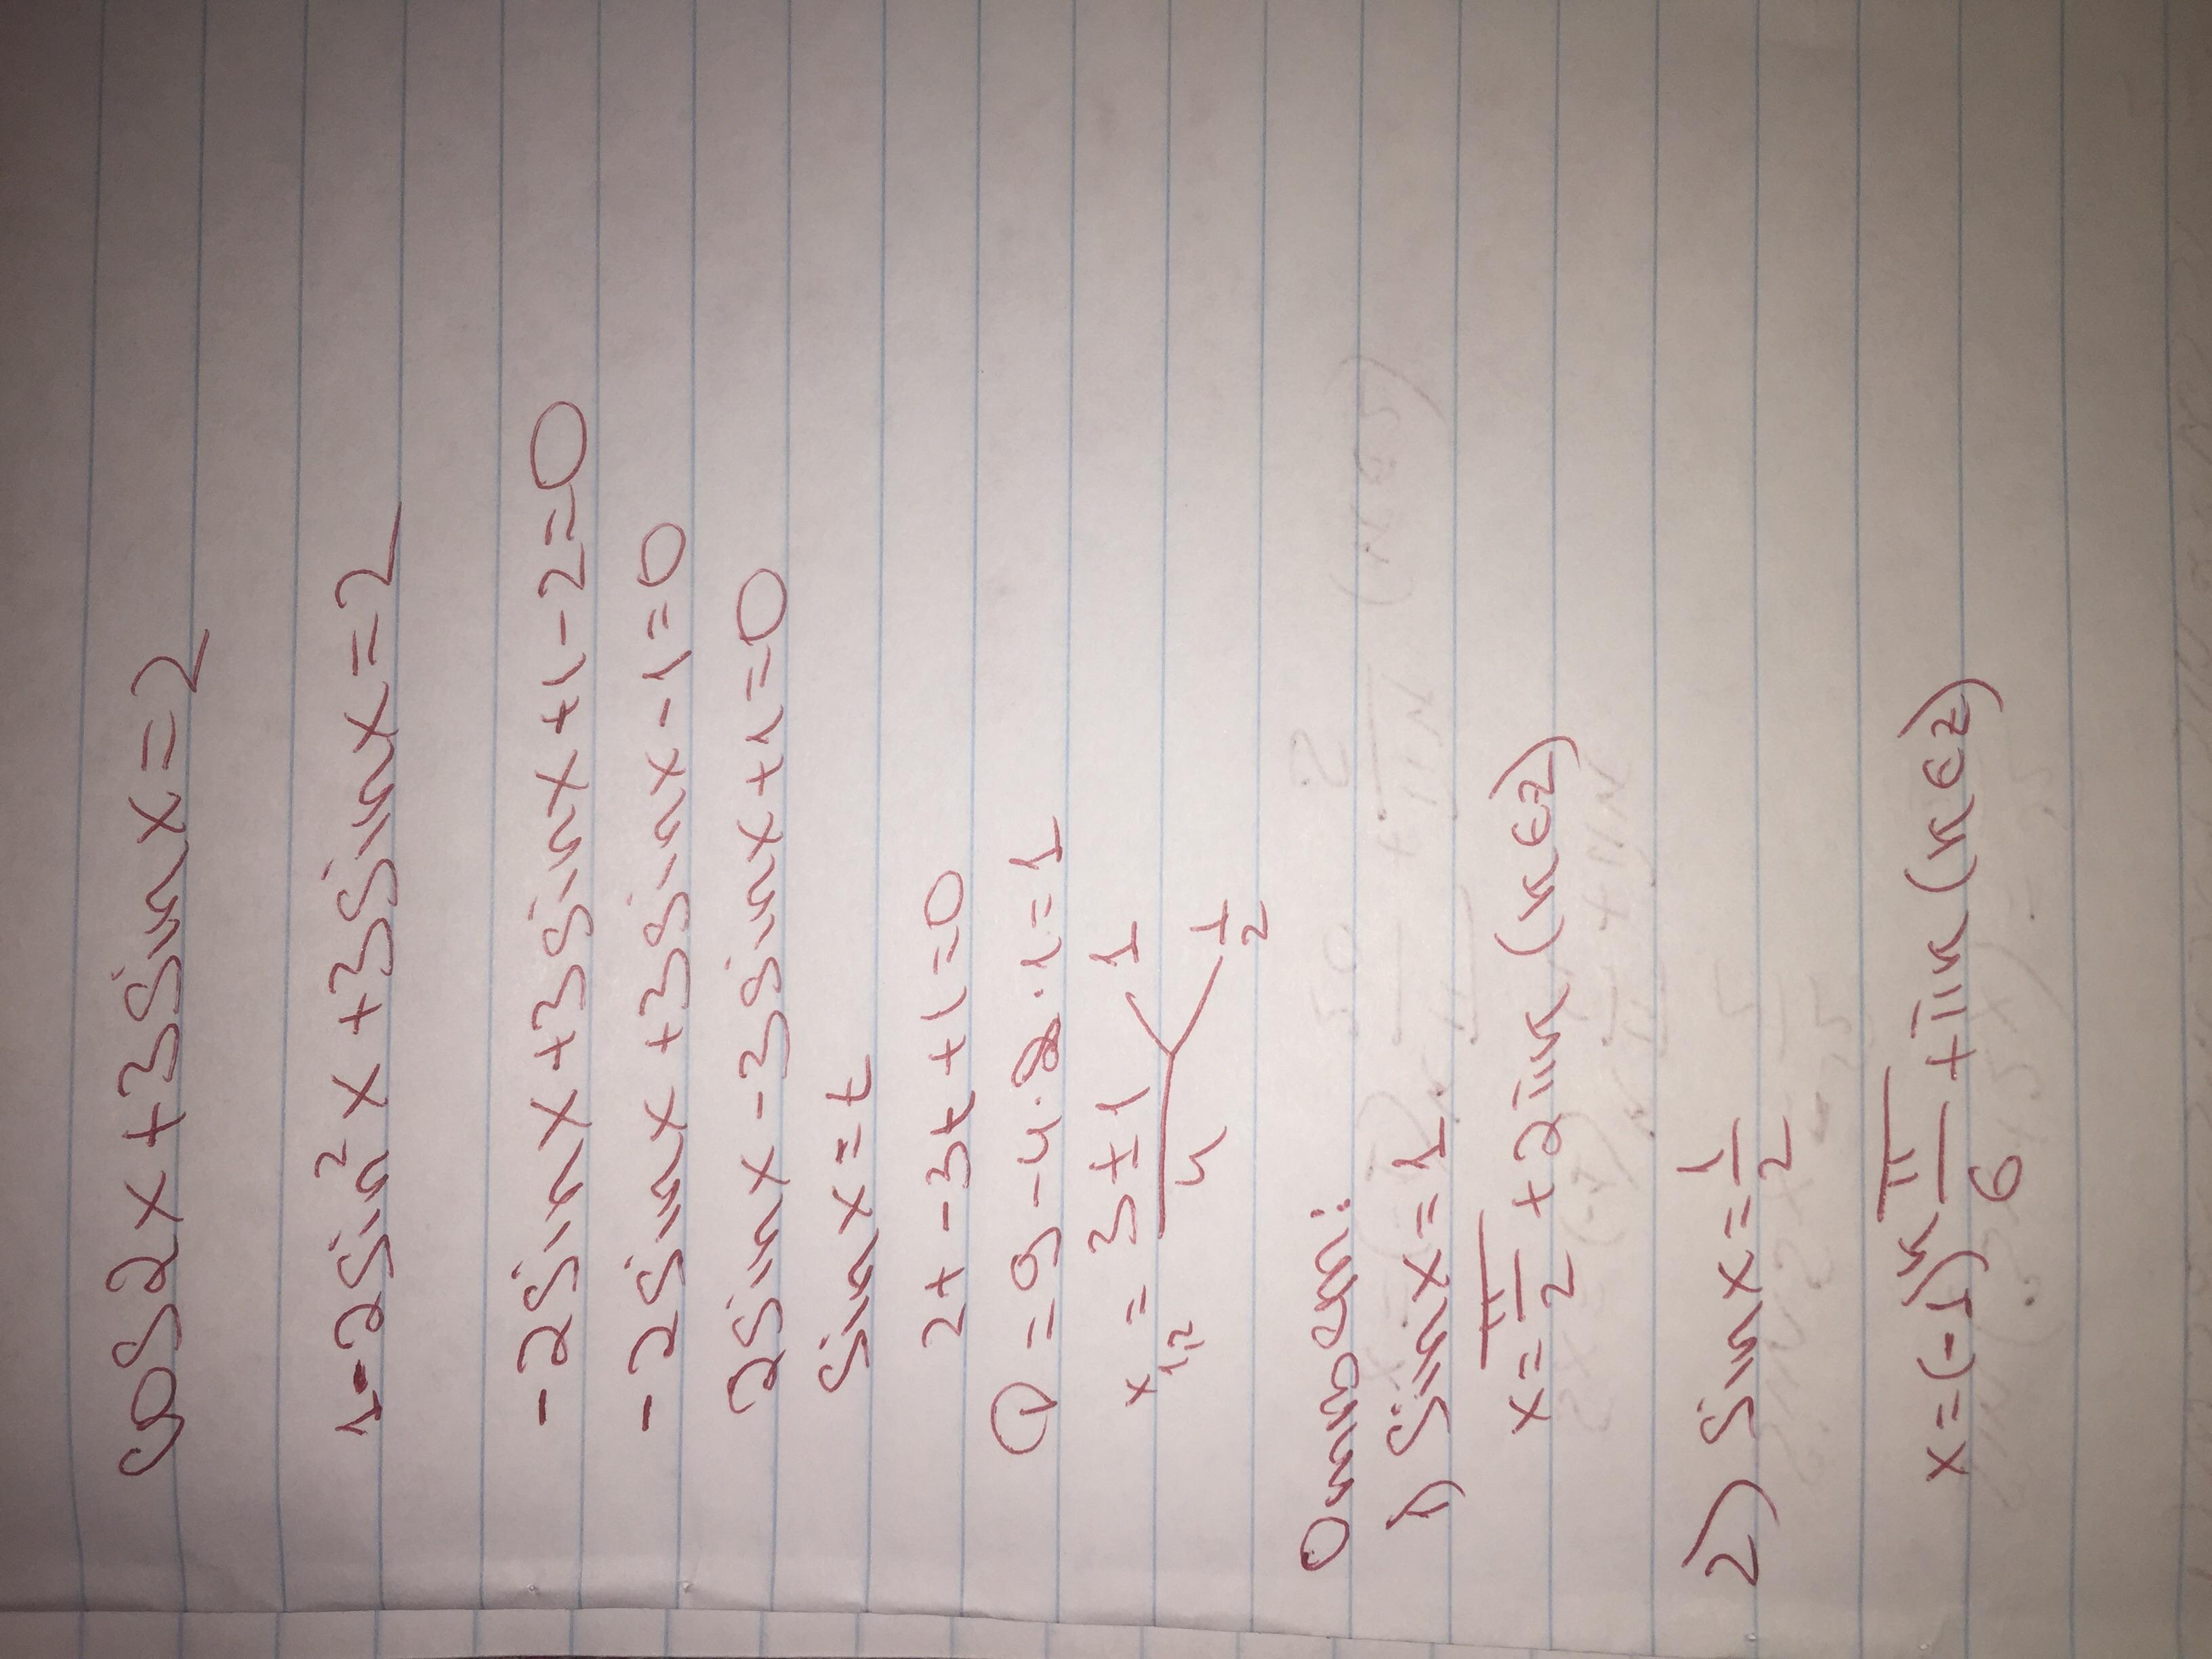 cos2x+3sinx=2
1-2sin²x+3sinx=2
-2sinx+3sinx+1-2=0
-2sinx+3sinx-1=0
2sinx-3sinx+1=0
sinx=t
2t-3t+1=0
D=9-4·2·1=1
x₁,₂=(3±1)/4 1 1/2
1) sinx=1
x=π/2+2πn(n∈z)
2) sinx=1/2
x=(-1)ⁿ π/6+πn(n∈z)